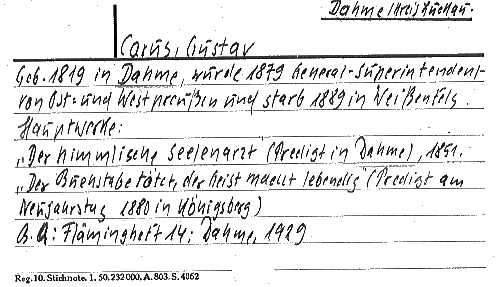 Dahme/Kreis Luckau.
Carus, Gustav
Geb. 1819 in Dahme, wurde 1879 General-Superintendent
von Ost- und Westpreußen und starb 1889 in Weißenfels.
Hauptwerke:
„Der himmlische Seelenarzt" (Predigt in Dahme), 1851.
„Der Buchstabe tötet, der Geist macht lebendig" (Predigt am
Neujahrstag 1880 in Königsberg)
B.Q: Flämingheft 14: Dahme, 1929
Reg. 10. Stichnote. 1. 50. 232000. A. 803. S. 4062